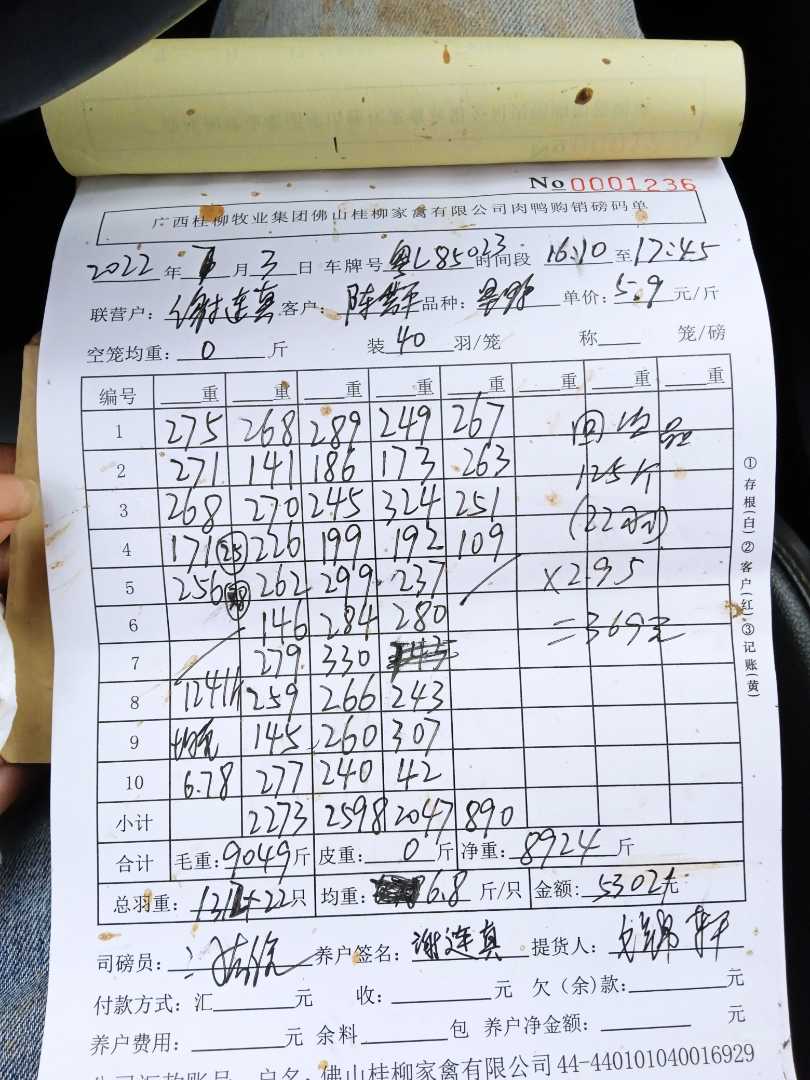 No 0001236
广西桂柳牧业集团佛山桂柳家禽有限公司肉鸭购销磅码单
2022年 7月 3日 车牌号 粤L85023 时间段 16:10至17:45
联营户：谢连真 客户：陈 品种： 单价：5.9元/斤
空笼均重：0斤 装40羽/笼 称 笼/磅
编号 重 重 重 重 重 重 重 重
1 275 268 289 249 267
2 271 141 186 173 263 125斤
3 268 270 245 324 251 (22只)
4 171 (25) 226 199 192 109
5 256 262 299 237 ×2.95
6 146 284 280 =369元
7 279 330
8 1241斤 259 266 243
9 均重 145 260 307
10 6.78 277 240 42
小计 2273 2598 2047 890
合计 毛重：9049斤 皮重：0斤 净重：8924斤
总羽重：131 +22只 均重：6.8斤/只 金额：5302元
司磅员： 养户签名：谢连真 提货人：
付款方式：汇 元 收： 元 欠（余）款： 元
养户费用： 元 余料 包 养户净金额： 元
公司汇款账号 户名：佛山桂柳家禽有限公司 44-440101040016929
①存根(白)②客户(红)③记账(黄)